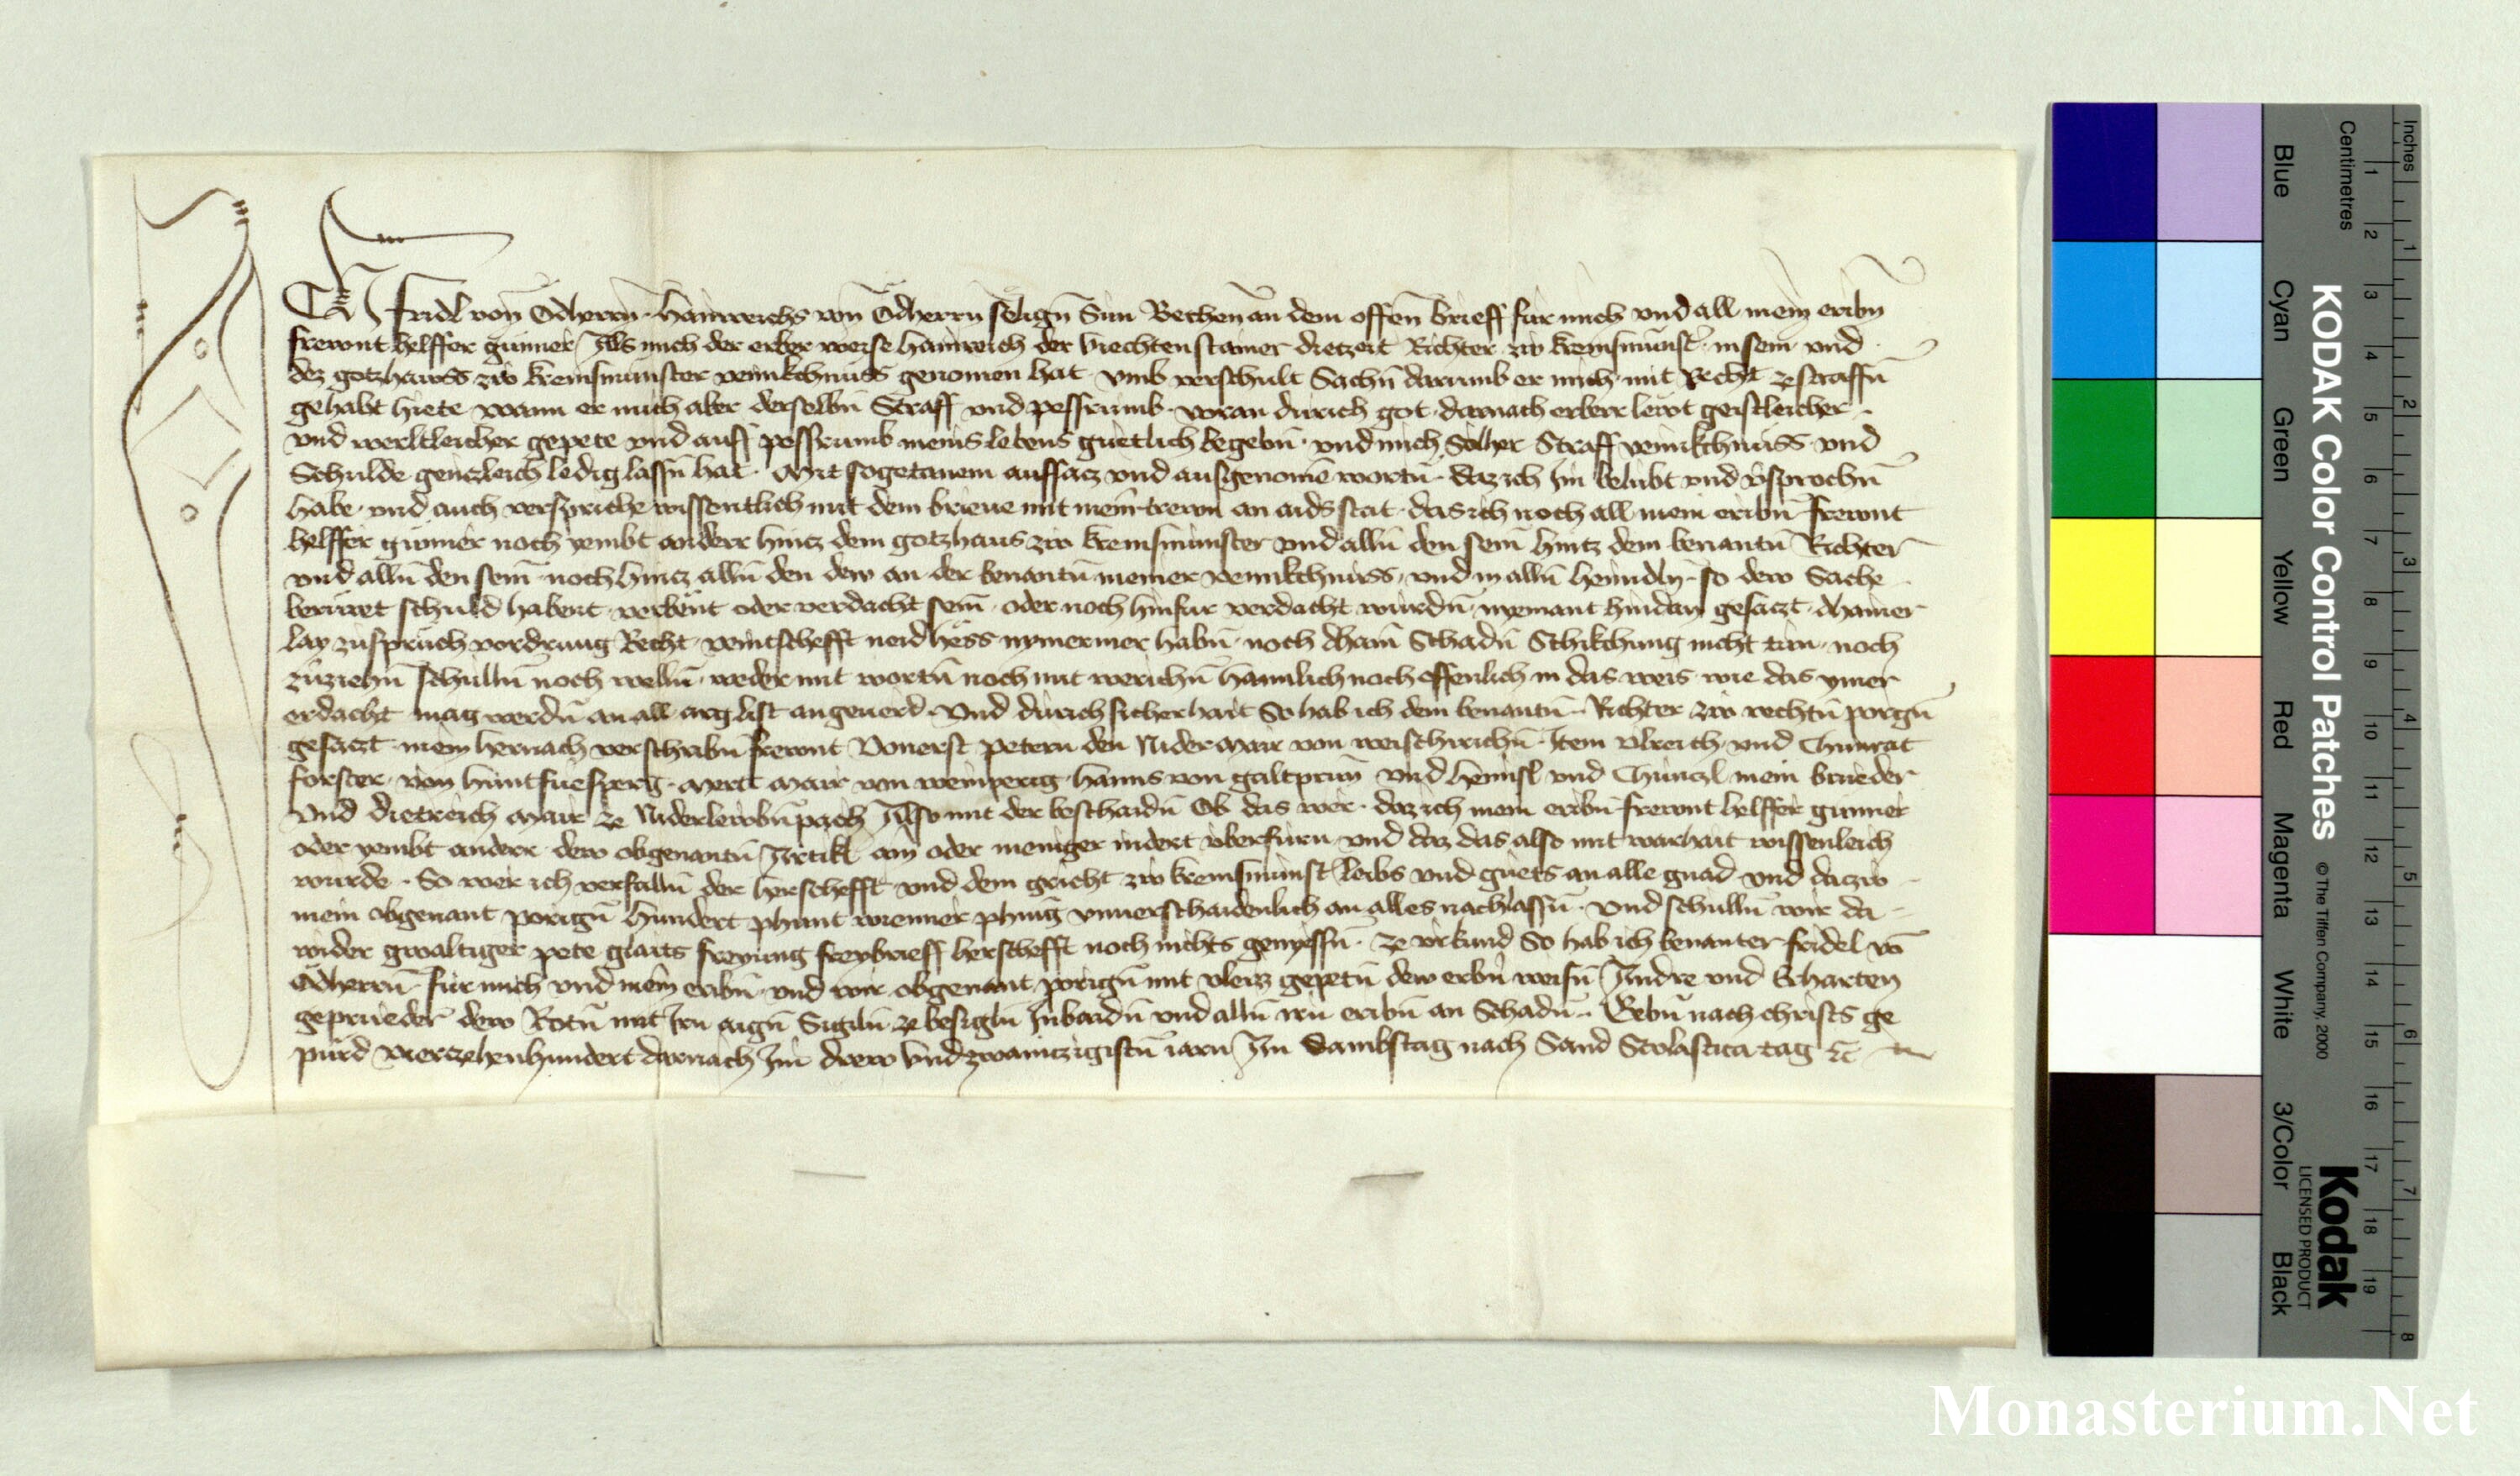 Ich fridl von Ödherrn hainreichs von Ödherrn seligñ Sun Bechen̄ an dem offen̄ brieff für mich und all mein eribn̄
frewnt helffer günner Als mich der erber weise hainreich der liechtenstainer dietzeit Richter zw kremsmunst̄ in sein und
dez gotzhawss zw kremsmünster venkchnüss genomen hat vmb verschult Sachn̄ darumb er mich mit Recht ze straffn̄
gehabt hiete wann er mich aber derselbn̄ Straff und pessrumb voran durich got darnach erberr lewt geistleicher
und werltleicher gepete und auff pessrumb meins lebens guetlich begebn̄ und mich Solher Straff venkchnüss und
Schulde genczleich ledig lassn̄ hat Mit sogetanem auffsacz und ausgenomē wortn̄ daz ich im belubt und v̄sprochn̄
habe und auch versprich wissentlich mit dem brieue mit mein trewn an aids stat das ich noch all mein eribn̄ frewnt
helffer günner noch yembt anderr hincz dem gotzhaus zw kremsmünster und alln̄ den sein̄ hintz dem benantn̄ Richter
und alln̄ den sein̄ noch hincz alln̄ den dew an der benantn̄ meiner venkchnüss und in alln̄ henndln̄ so dew Sache
berüret schuld habent verbent oder verdacht sein̄ oder noch hinfur verdacht wurdn̄ nyemant hindan gesaczt dhainer
lay zuspruch vordrung Recht veintschefft neid hëss nymermer habn̄ noch dhain̄ Schadn̄ Schikchung nicht tun noch
züziehn̄ schulln̄ noch welln̄ weder mit wortn̄ noch mit werichn̄ haimlich noch offenlich in das weis wie das ymer
erdacht mag werdn̄ an all arg list angeuerd Und durich sicherhait So hab ich dem benantn̄ Richter zw rechtn̄ porgn̄
gesaczt mein hernach verschribn̄ frewnt Vonerst petern den Nidermair von weischirichn̄ Item vlreich und Chunrat
forster von huntfuesperg mertt mair von weinperig hanns von galtprun̄ und hennsl und Chunczl mein brueder
Und dietreich mair ze Niderlewbn̄pach Also mit der beschaidn̄ Ob das wer daz ich mein eribn̄ frewnt helffer gunner
oder yembt anderr dew obgenantn̄ Artikl ain oder meniger indert überfurn und daz das also mit warhait wissenleich
würde So wer ich verfalln̄ der herschefft und dem gericht zw kremsmünst̄ leibs und guets an alle gnad und darzw
mein obgenant porign̄ hundert phunt wienner phniḡ vnuerschaidenlich an alles nachlassn̄ Und schulln̄ wir da
wider gwaltiger pete glaits freyung freybrieff herschefft noch nichts genyessn̄ Ze vrkund So hab ich benanter fridel vō
Ödherrn̄ für mich und mein eribn̄ und wir obgenant porign̄ mit vleizz gepetn̄ dew erbn̄ weisn̄ Andre und Scharten
geprüeder dew Rotn̄ mit irn aign̄ Sigiln̄ ze besigln̄ Inbaidn̄ und alln̄ irn̄ eribn̄ an Schadn̄ Gebn̄ nach christs ge
pürd vierczehenhundert darnach Im drew und zwainczigistn̄ iarn Im Sambstag nach Sand Scolastica tag ꝛc̄
Inches
Centimetres
Blue
Cyan
Green
Yellow
Red
Magenta
White
3/Color
Black
KODAK Color Control Patches
© The Tiffen Company, 2000
Kodak
LICENSED PRODUCT
Monasterium.Net